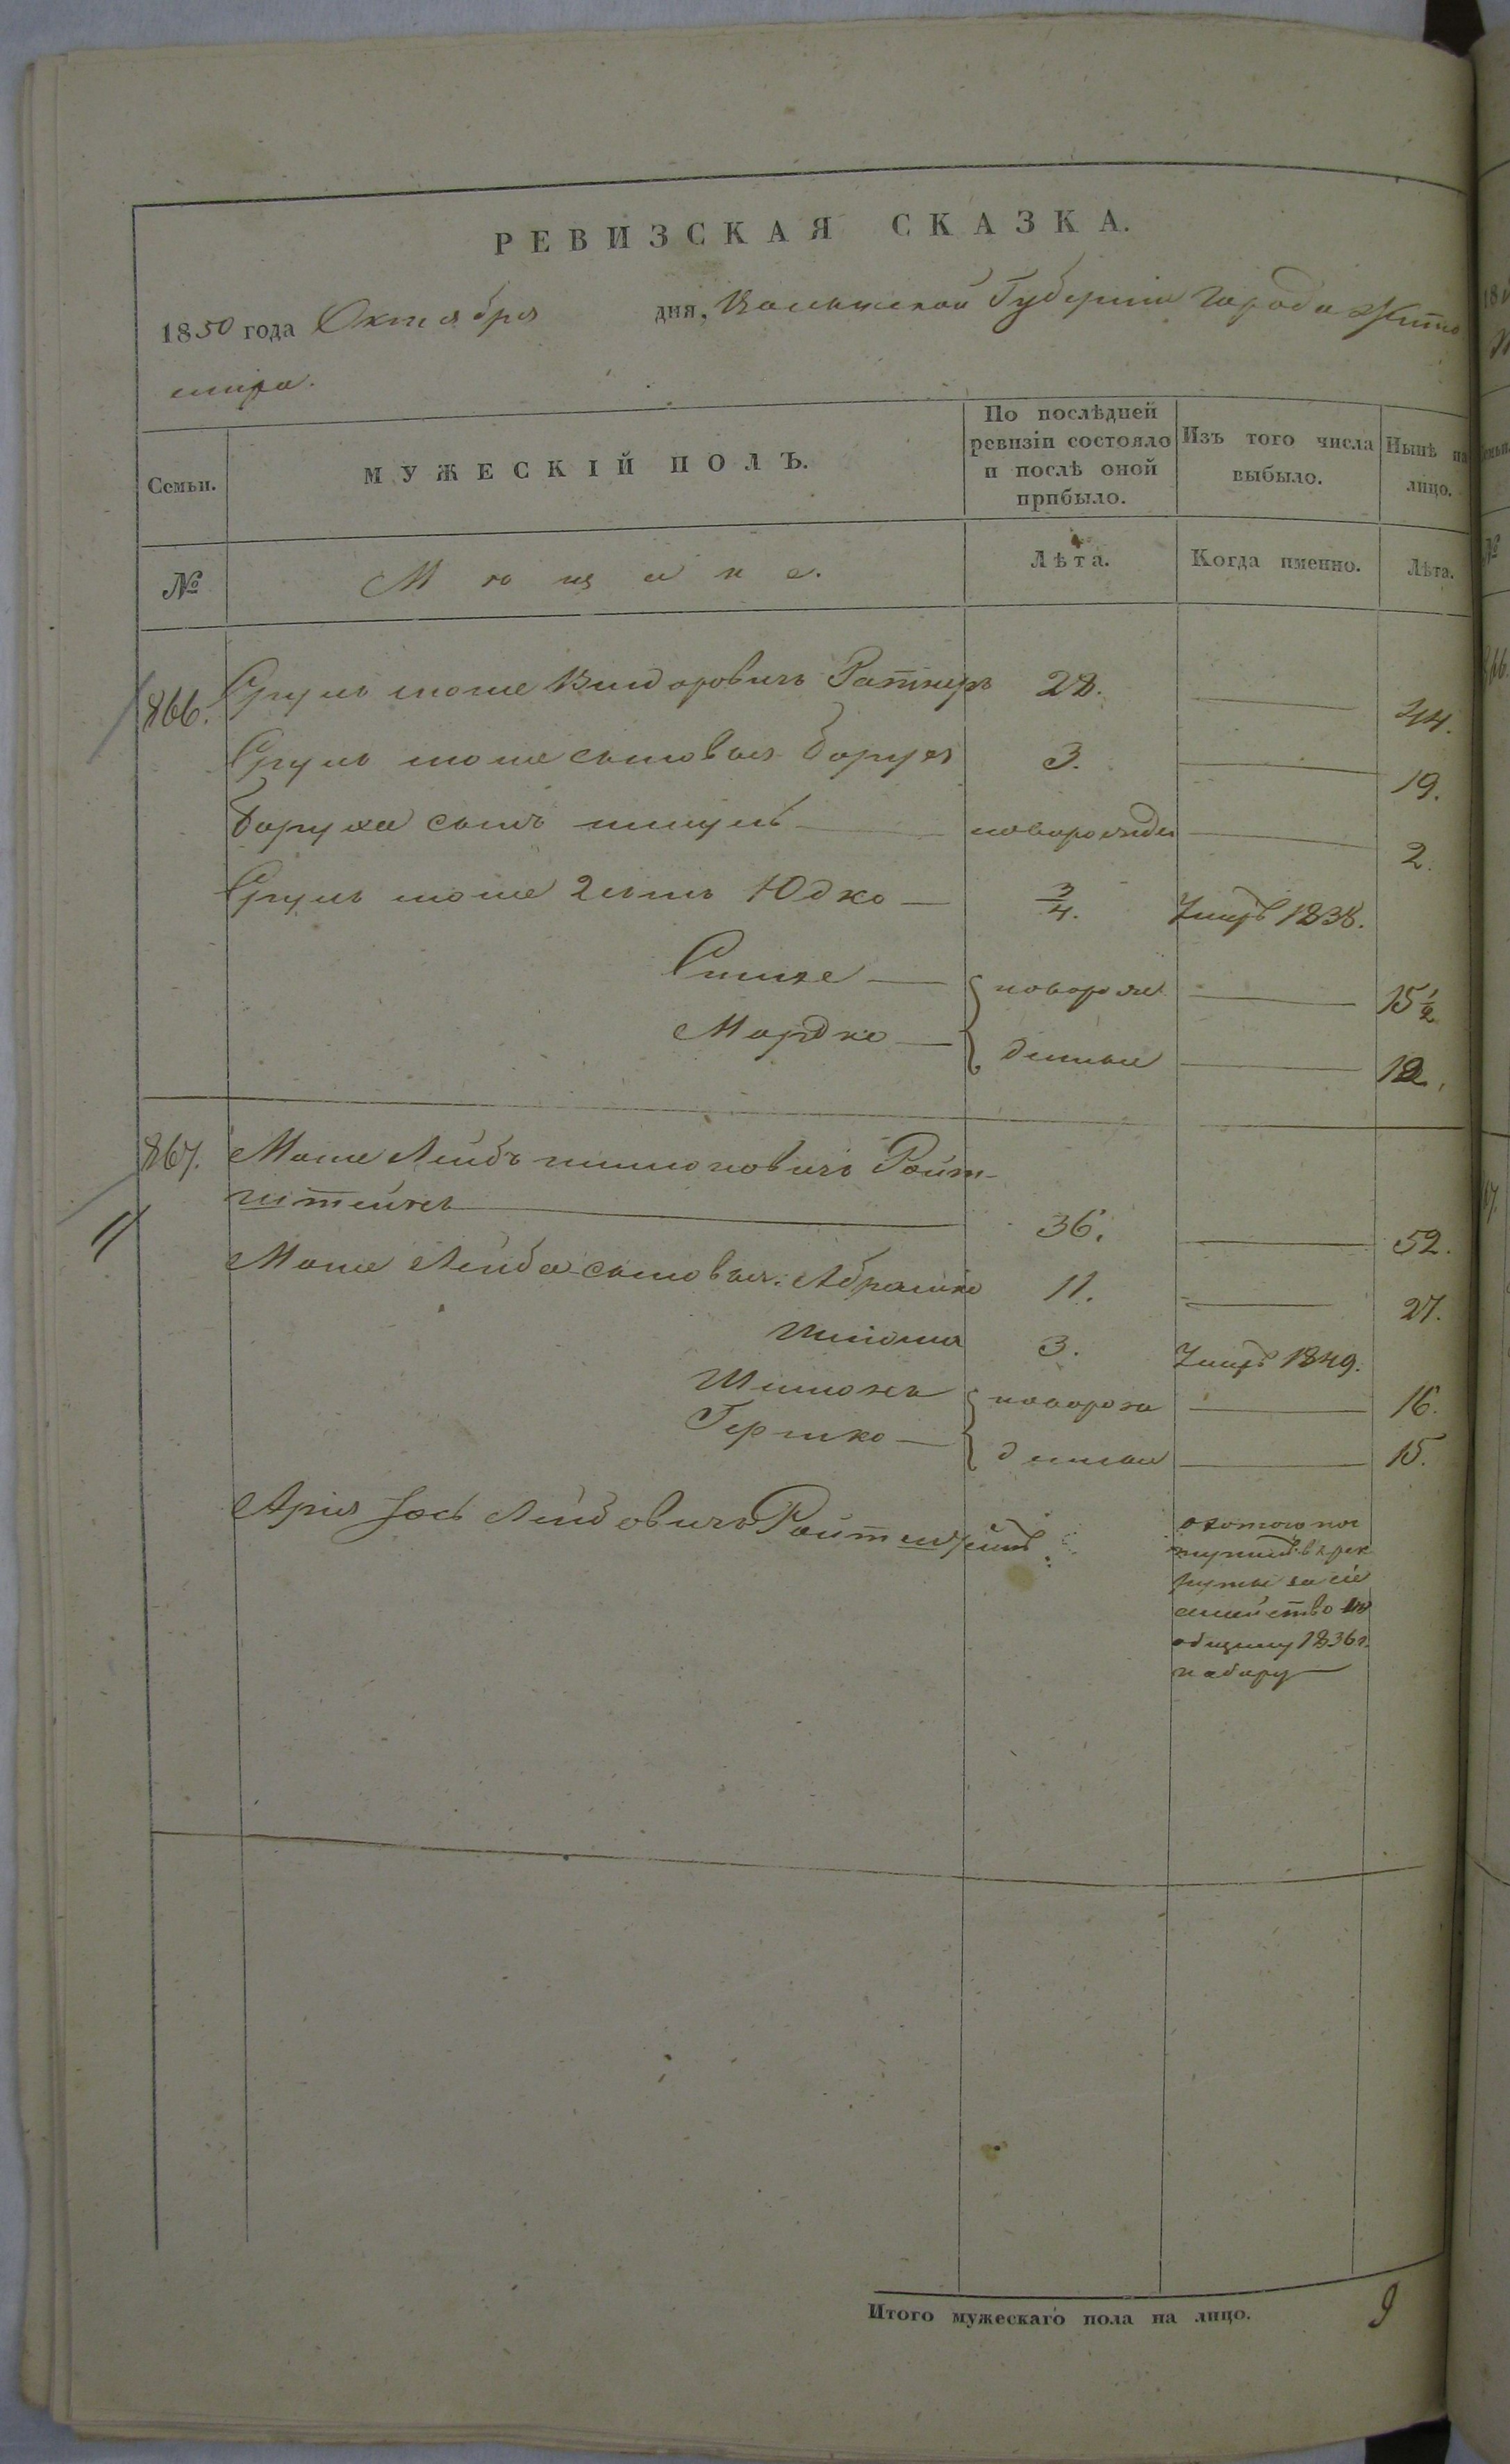 РЕВИЗСКАЯ СКАЗКА.
1850 года Октября дня, Волынской Губерніи Города Жито
мира.
Семьи.
МУЖЕСКІЙ ПОЛЪ.
По послѣдней
ревизіи состояло
и послѣ оной
прибыло.
Изъ того числа
выбыло.
Нынѣ на
лицо.
№
Мѣщане.
Лѣта.
Когда именно.
Лѣта.
866. Сруль моше Видоровичъ Ратнеръ 28. 44.
Сруль моше сыновья Борухъ 3. 19.
Боруха сынъ новорожде 2.
Сруль моше 2 сынъ Юдко 3/4. Умеръ 1838.
новорож 15 1/2
Мордко денные 12.
867. Моше Лейбъ шимоновичъ Ройт-
штейнъ 36. 52.
Моше Лейба сыновья: Абрамко 11. 27.
3. Умеръ 1849.
Шимонъ новорож 16.
Гершко денные 15.
Арія Іось Лейбовичъ
охотою пос
тупилъ въ рек
руты за сіе
семейство по
общему 1836 г.
набору
Итого мужескаго пола на лицо. 9
11